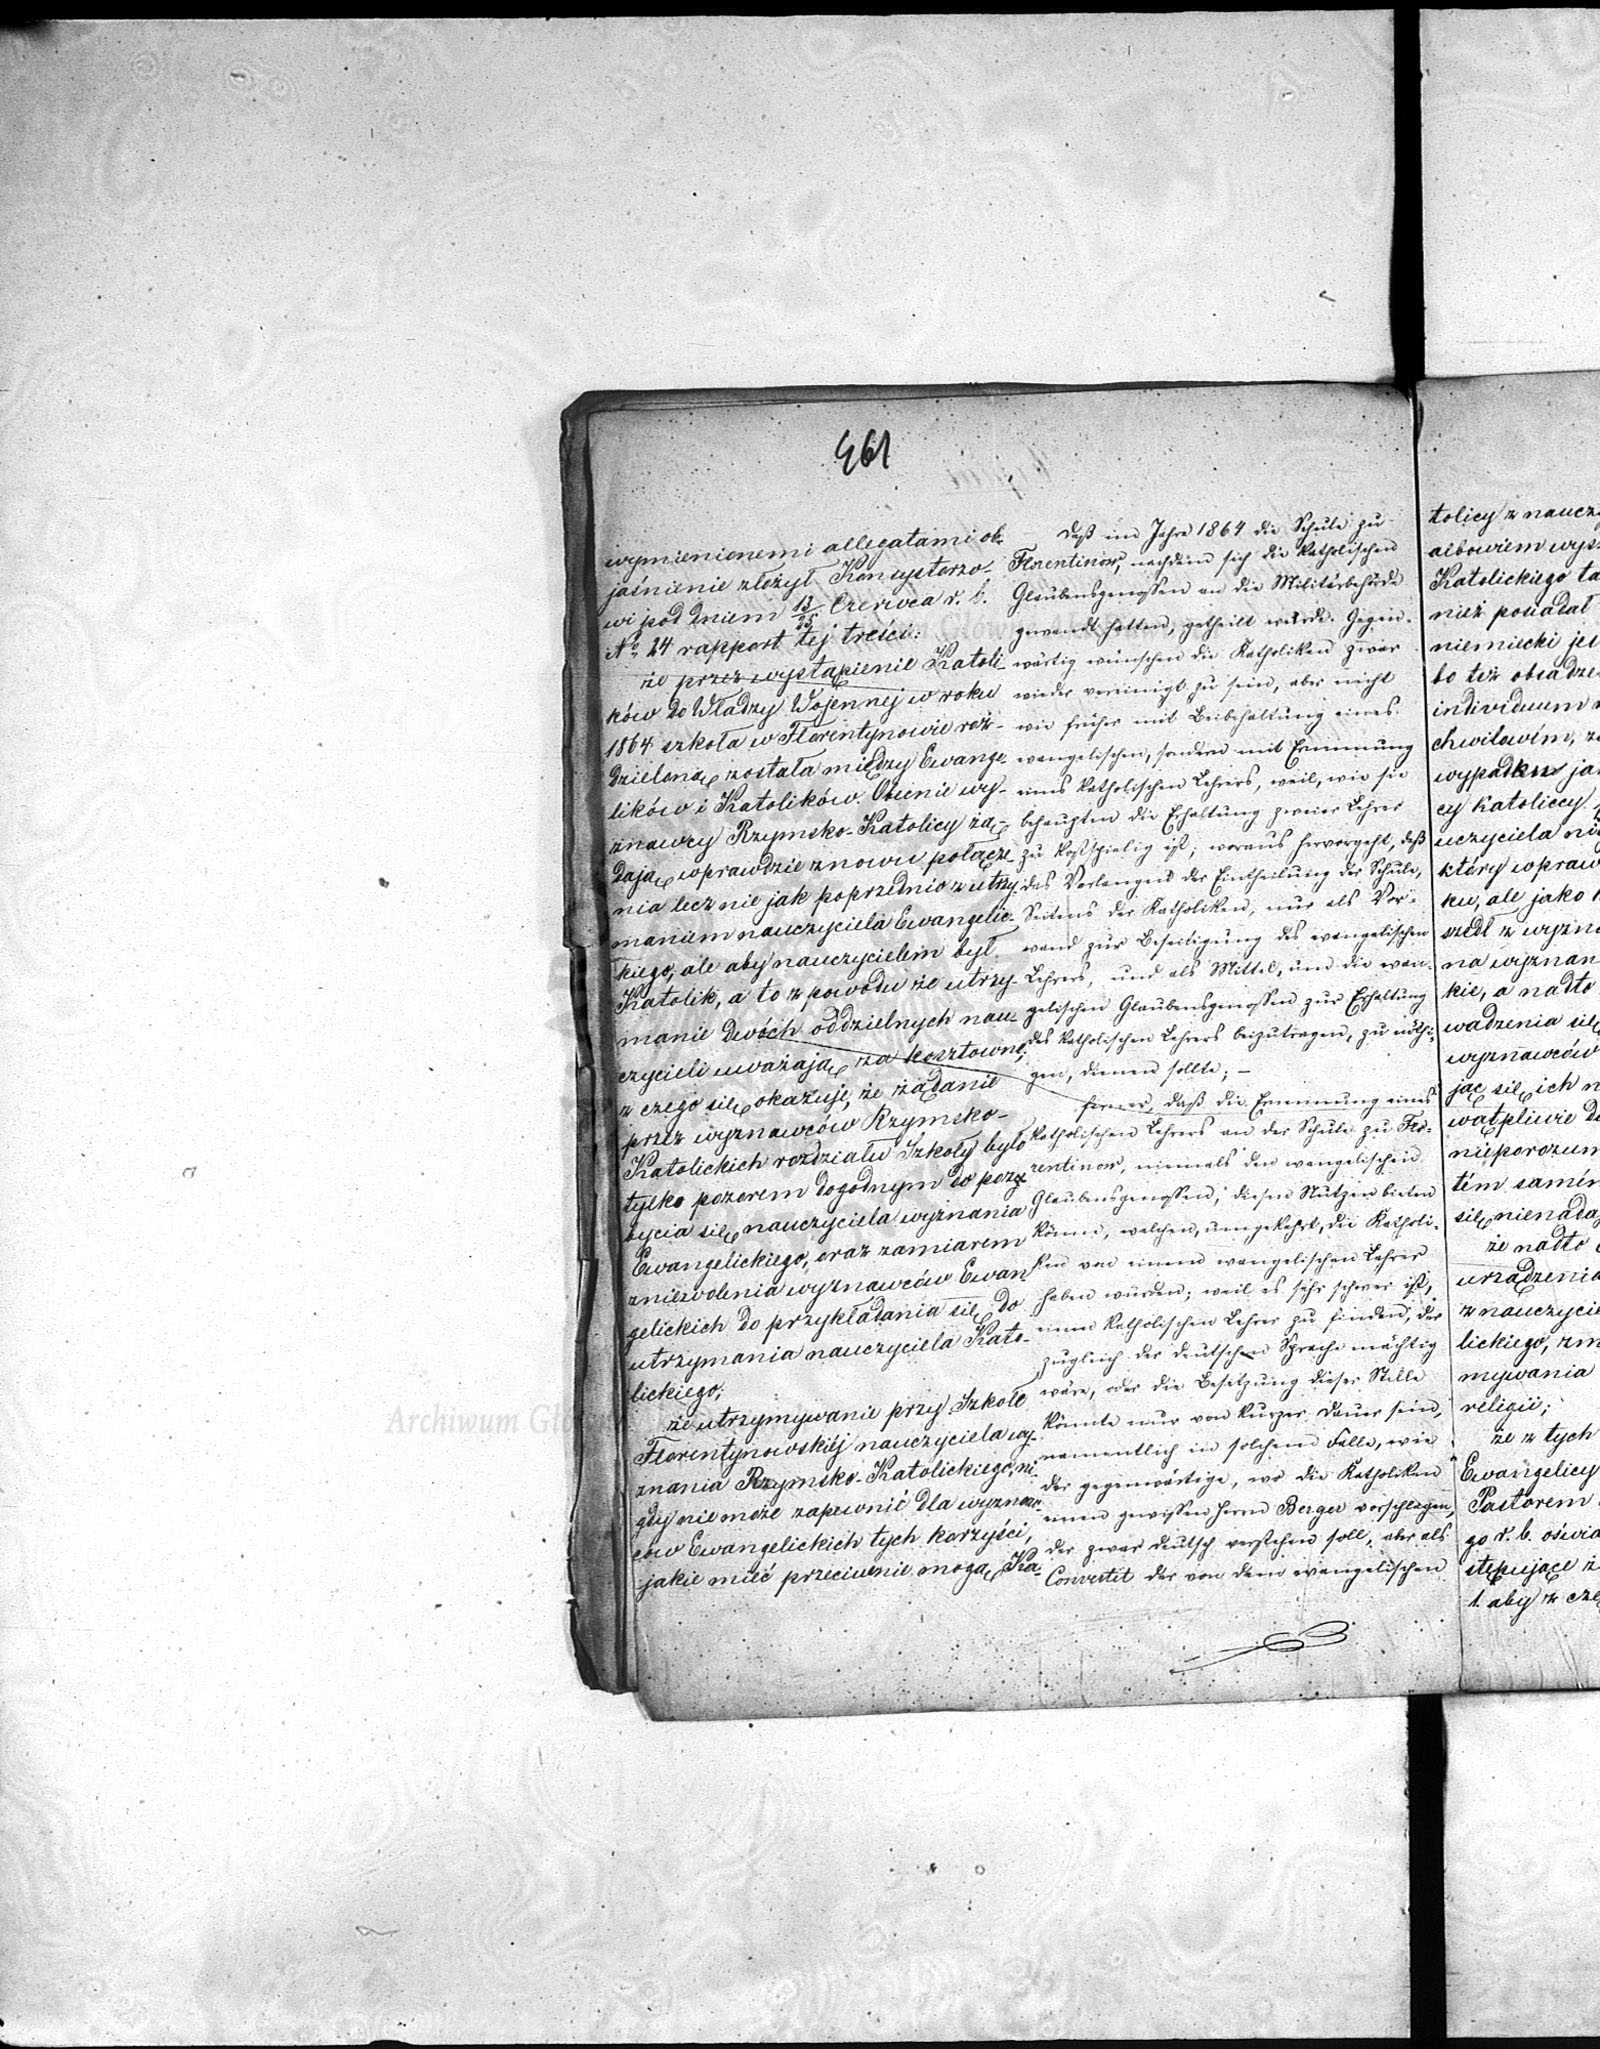 461
wymienionemi allegatami ob-
jaśnienie złożył Konsystorzo-
wi pod dniem 13/25 Czerwca r. b.
No 24 rapport tej treści:
że przez wystąpienie Katoli-
ków do Władzy Wojennej w roku
1864 szkoła w Florentynowie roz-
dzieloną została między Ewange-
lików i Katolików. Obecnie wy-
znawcy Rzymsko-Katolicy żą-
dają wprawdzie znowu połącze-
nia lecz nie jak poprzednio z utrzy-
maniem nauczyciela Ewangelic-
kiego, ale aby nauczycielem był
Katolik, a to z powodu że utrzy-
manie dwóch oddzielnych nau-
czycieli uważają za kosztowne;
z czego się okazuje, że żądanie
przez wyznawców Rzymsko-
Katolickich rozdziału Szkoły było
tylko pozorem dogodnym do pozy-
bycia się nauczyciela wyznania
Ewangelickiego, oraz zamiarem
zniewolenia wyznawców Ewan-
gelickich do przykładania się do
utrzymania nauczyciela Kato-
lickiego;
że utrzymywanie przy Szkole
Florentynowskiéj nauczyciela wy-
znania Rzymsko-Katolickiego, ni-
gdy nie może zapewnić dla wyznaw-
ców Ewangelickich tych korzyści,
jakie mieć przeciwnie mogą Ka-
daß im Jahre 1864 die Schule zu
Florentinow, nachdem sich die katholischen
Glaubensgenossen an die Militärbehörde
gewandt hatten, getheilt wurde. Gegen-
wärtig wünschen die Katholiken zwar
wieder vereinigt zu sein, aber nicht
wie früher mit Beibehaltung eines
evangelischen, sondern mit Ernennung
eines katholischen Lehrers, weil, wie sie
behaupten die Erhaltung zweier Lehrer
zu kostspielig ist; woraus hervorgeht, daß
das Verlangen der Eintheilung der Schule,
Seitens der Katholiken, nur als Vor-
wand zur Beseitigung des evangelischen
Lehrers, und als Mittel, um die evan-
gelischen Glaubensgenossen zur Erhaltung
des katholischen Lehrers beizutragen, zu nöthi-
gen, dienen sollte; –
ferner, daß die Ernennung eines
katholischen Lehrers an der Schule zu Flo-
rentinow, niemals den evangelischen
Glaubensgenossen, diesen Nutzen bieten
könne, welchen, umgekehrt, die Katholi-
ken von einem evangelischen Lehrer
haben würden; weil es sehr schwer ist,
einen katholischen Lehrer zu finden, der
zugleich der deutschen Sprache mächtig
wäre, oder die Besetzung dieser Stelle
könnte nur von kurzer Dauer sein,
namentlich in solchem Falle, wie
der gegenwärtige, wo die Katholiken
einen gewissen Herrn Berger vorschlagen,
der zwar deutsch verstehen soll, aber als
Convertit der von dem evangelischen
tolicy z naucz
albowiem wys
Katolickiego ta
nież posiadał
niemiecki jes
bo też obsadze
individuum
chwilowém, z
wypadku ja
cy Katoliccy
uczyciela ni
który wpraw
ku, ale jako
szedł z wyzn
na wyznan
kie, a nadto
wadzenia się
wyznawców
jąc się ich n
wątpliwie d
nieporozum
tém samém
się nienada
że nadto
urządzenia
z nauczycie
lickiego, zm
mywania
religii;
że z tych
Ewangelicy
Pastorem
go r. b. oświa
stępujące ż
1. aby z cze
Archiwum Główne